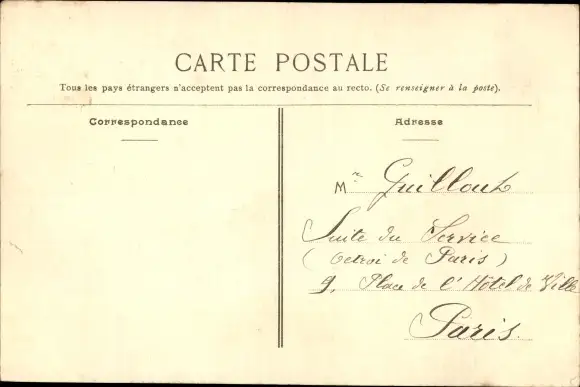 CARTE POSTALE
Tous les pays étrangers n'acceptent pas la correspondance au recto. (Se renseigner à la poste).
Correspondance
Adresse
Mr Guilloux
Suite du Service
(Octroi de Paris)
9, Place de l'Hôtel de Ville
Paris.